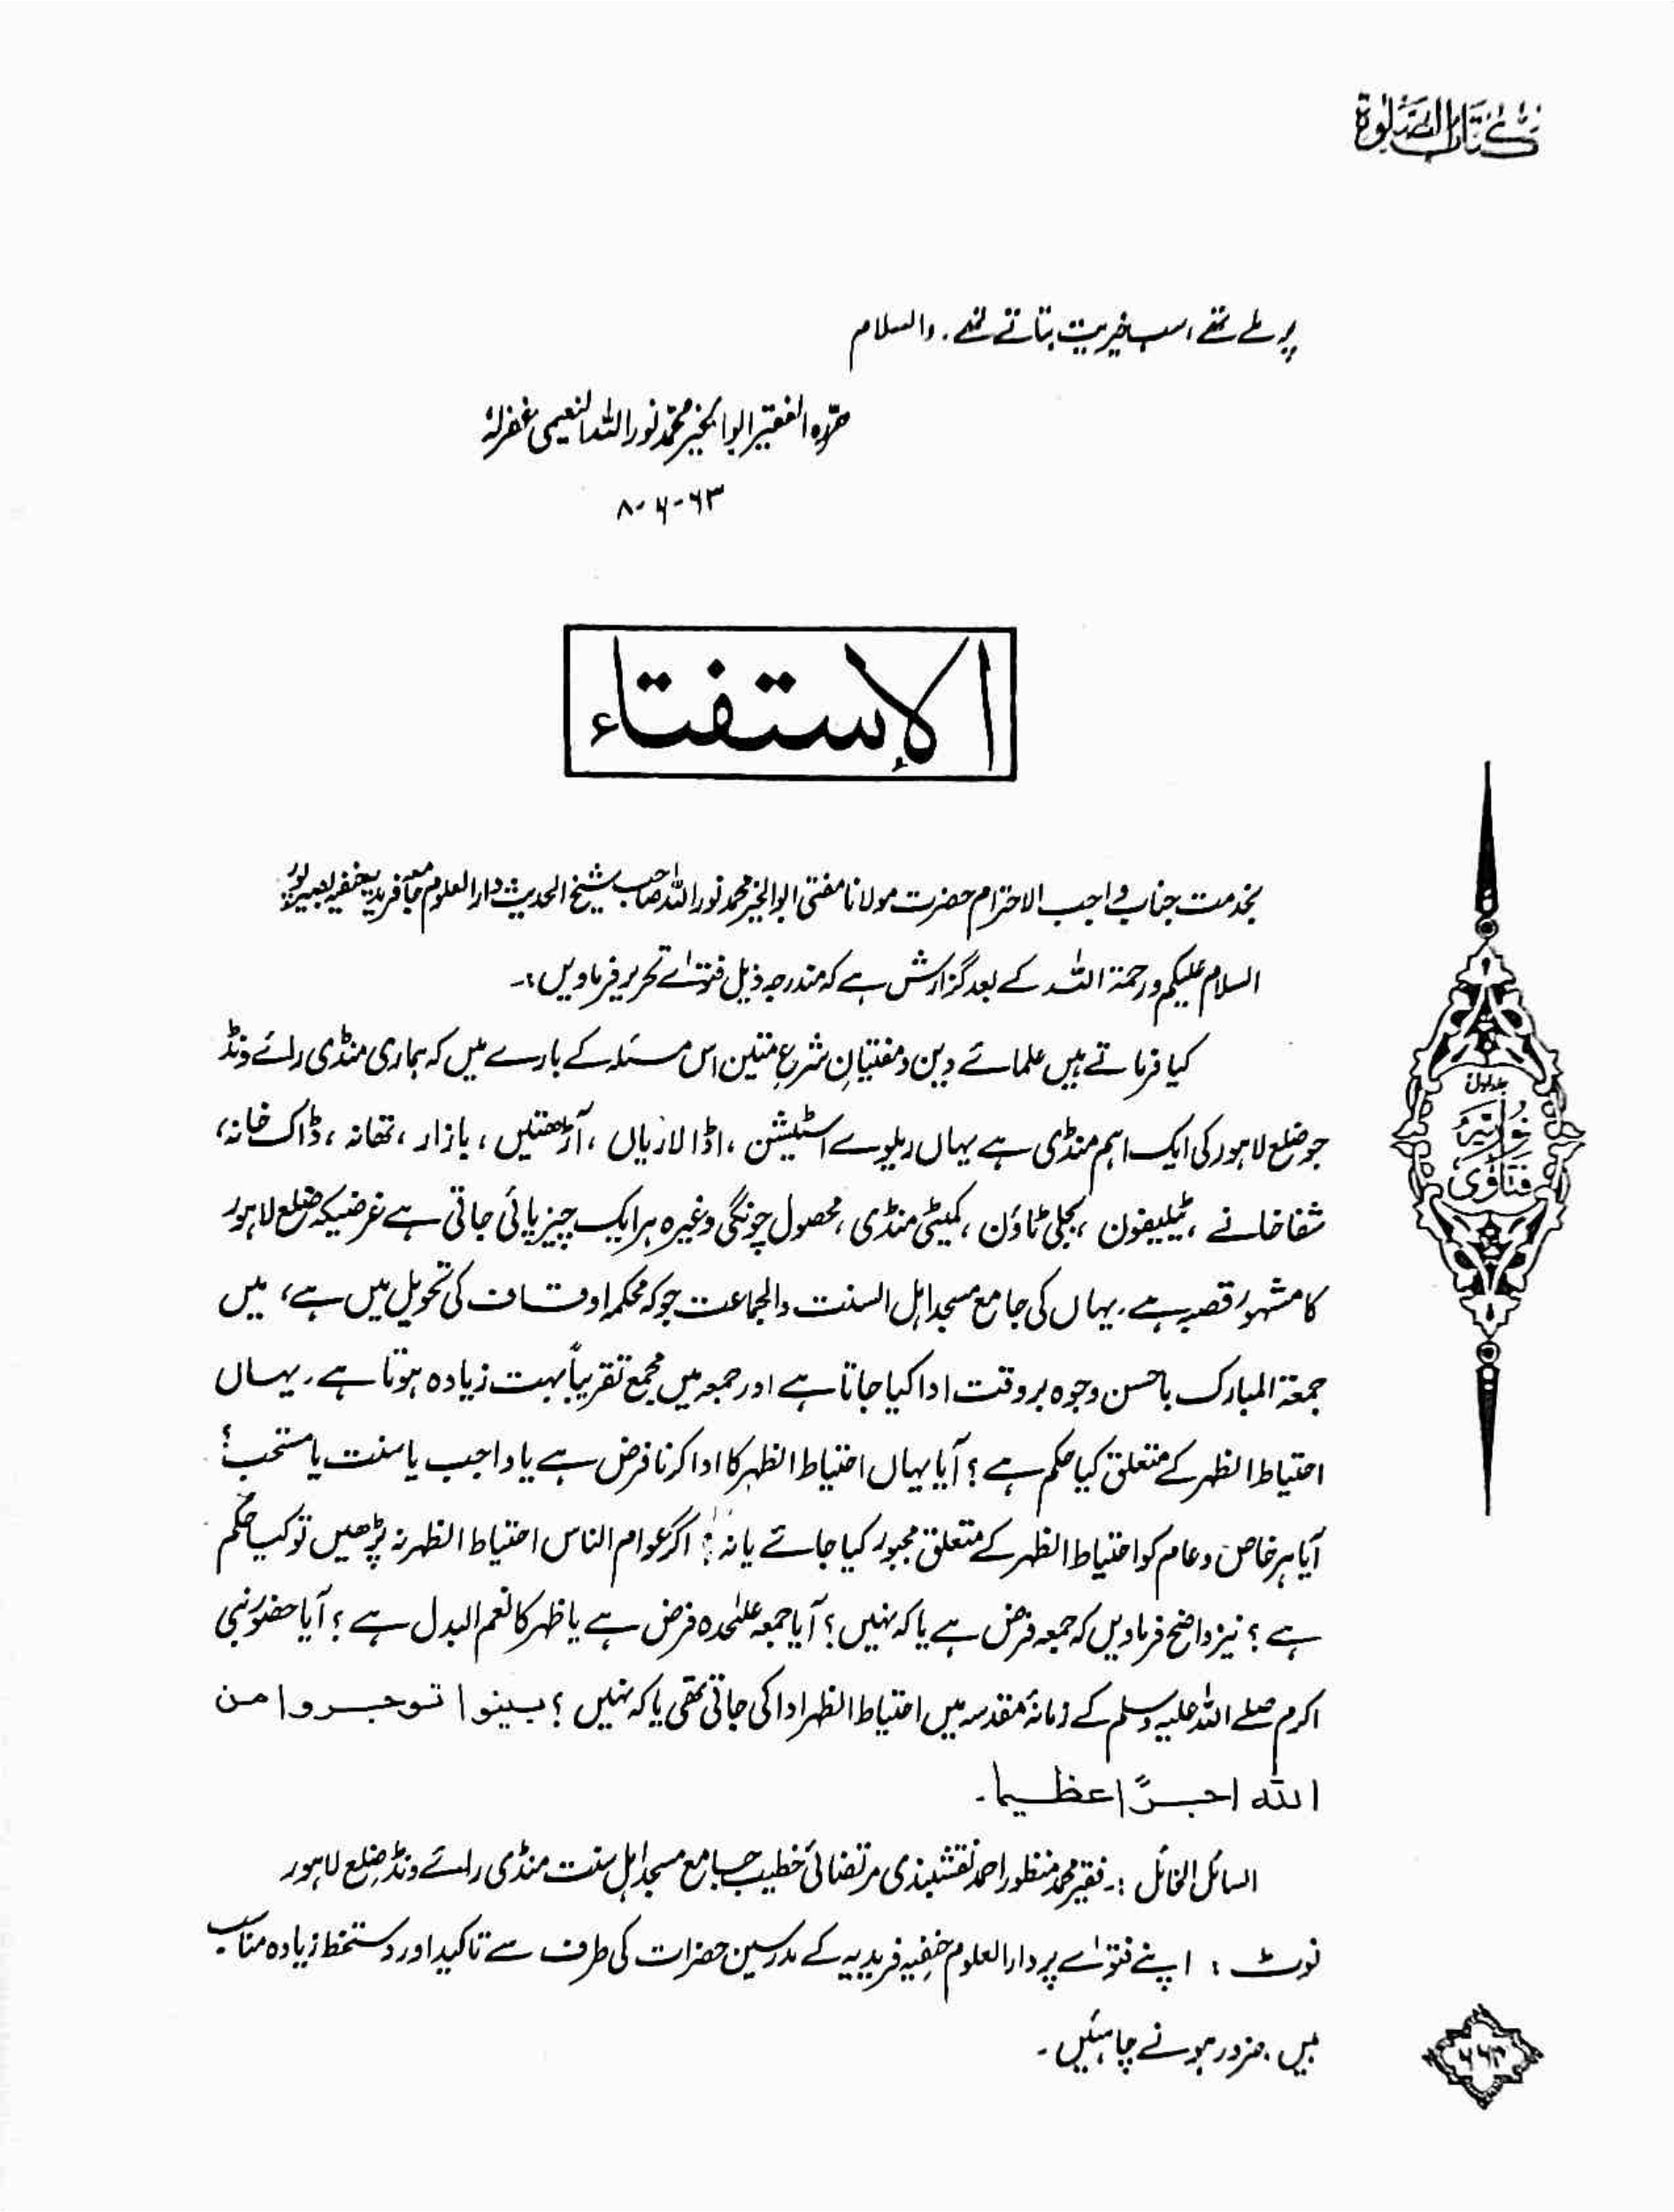 كتاب الصلوة
پر ملے تھے، سب خیریت بتاتے تھے۔ والسلام
حرّرہ الفقیر ابوالخیر محمّد نور اللہ النعیمی غفرلہٗ
۸-۶-۶۳
الإستفتاء
بخدمت جناب واجب الاحترام حضرت مولانا مفتی ابوالخیر محمد نور اللہ صاحب شیخ الحدیث دارالعلوم جامعہ فریدیہ حنفیہ بصیرپور
السلام علیکم ورحمۃ اللہ کے بعد گزارش ہے کہ مندرجہ ذیل فتوٰے تحریر فرماویں :۔
کیا فرماتے ہیں علمائے دین و مفتیانِ شرعِ متین اس مسئلہ کے بارے میں کہ ہماری منڈی رائے ونڈ
جو ضلع لاہور کی ایک اہم منڈی ہے یہاں ریلوے اسٹیشن ، اڈا لاریاں ، آڑھتیں ، بازار ، تھانہ ، ڈاک خانہ ،
شفاخانے ، ٹیلیفون ، بجلی ٹاؤن ، کمیٹی منڈی ، محصول چونگی وغیرہ ہر ایک چیز پائی جاتی ہے غرضیکہ ضلع لاہور
کا مشہور قصبہ ہے۔ یہاں کی جامع مسجد اہل السنت والجماعت جو کہ محکمہ اوقاف کی تحویل میں ہے، میں
جمعۃ المبارک باحسن وجوہ بروقت ادا کیا جاتا ہے اور جمعہ میں مجمع تقریباً بہت زیادہ ہوتا ہے۔ یہاں
احتیاط الظہر کے متعلق کیا حکم ہے ؟ آیا یہاں احتیاط الظہر کا ادا کرنا فرض ہے یا واجب یا سنت یا مستحب؟
آیا ہر خاص و عام کو احتیاط الظہر کے متعلق مجبور کیا جائے یا نہ ؟ اگر عوام الناس احتیاط الظہر نہ پڑھیں تو کیا حکم
ہے ؟ نیز واضح فرماویں کہ جمعہ فرض ہے یا کہ نہیں ؟ آیا جمعہ علٰحدہ فرض ہے یا ظہر کا نعم البدل ہے ؟ آیا حضور نبی
اکرم صلے اللہ علیہ وسلم کے زمانۂ مقدسہ میں احتیاط الظہر ادا کی جاتی تھی یا کہ نہیں ؟ بينوا توجروا من
الله اجرًا عظيما۔
السائل :۔ فقیر محمد منظور احمد نقشبندی مرتضائی خطیب جامع مسجد اہل سنت منڈی رائے ونڈ ضلع لاہور
نوٹ : اپنے فتوٰے پر دارالعلوم حنفیہ فریدیہ کے مدرسین حضرات کی طرف سے تاکید اور دستخط زیادہ مناسب
ہیں، ضرور ہونے چاہئیں۔
جلد اول
نُوریّہ
فتاوٰی